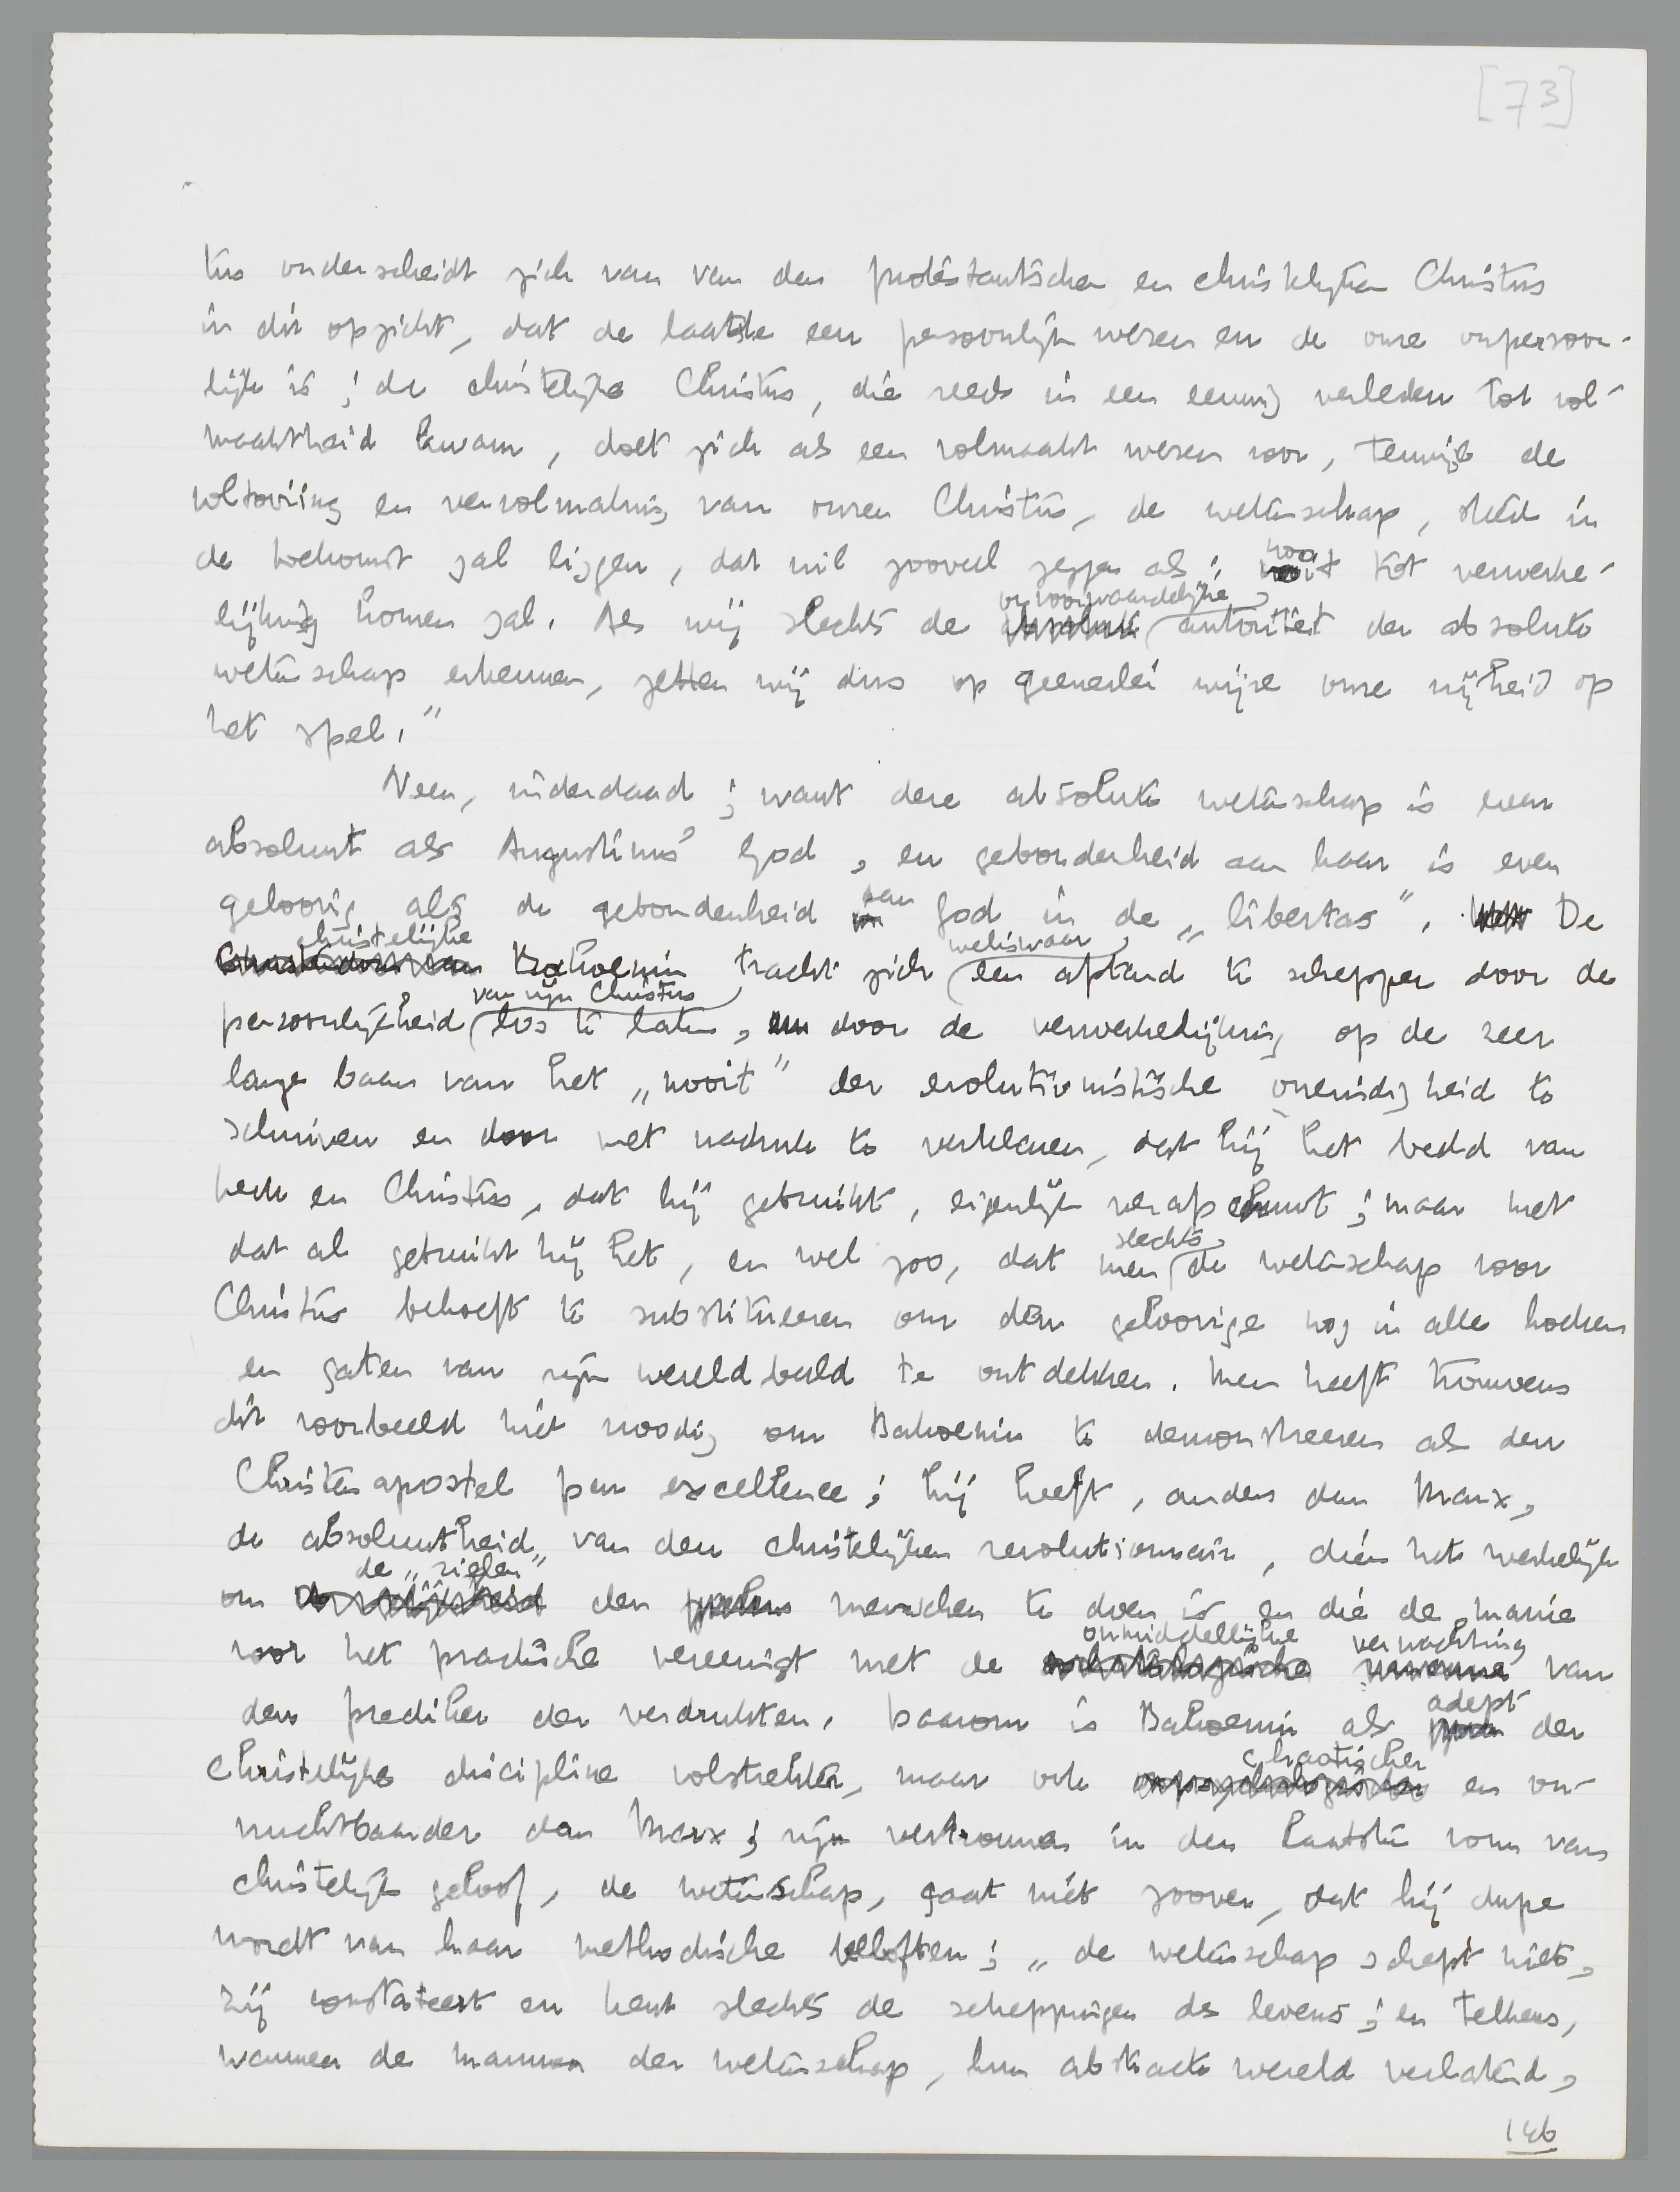 [73]
tus onderscheidt zich van van den protestantschen en christelijken Christus
in dit opzicht, dat de laatste een persoonlijk wezen en de onze onpersoon-
lijk is; de christelijke Christus, die reeds in een eeuwig verleden tot vol-
maaktheid kwam, doet zich als een volmaakt wezen voor, terwijl de
voltooiing en vervolmaking van onzen Christus, de wetenschap, steeds in
de toekomst zal liggen, dat wil zooveel zeggen als: nooit tot verwerke-
lijking komen zal. Als wij slechts de onvoorwaardelijke autoriteit der absolute
wetenschap erkennen, zetten wij dus op geenerlei wijze onze vrijheid op
het spel."
Neen, inderdaad; want deze absolute wetenschap is even
absoluut als Augustinus' God, en gebondenheid aan haar is even
geloovig als de gebondenheid aan God in de „libertas". De
christelijke Bakoenin tracht zich weliswaar een afstand te scheppen door de
persoonlijkheid van zijn Christus los te laten, door de verwerkelijking op de zeer
lange baan van het „nooit" der evolutionistische oneindigheid te
schuiven en door met nadruk te verklaren, dat hij het beeld van
kerk en Christus, dat hij gebruikt, eigenlijk verafschuwt; maar met
dat al gebruikt hij het, en wel zoo, dat men slechts de wetenschap voor
Christus behoeft te substitueeren om den geloovige nog in alle hoeken
en gaten van zijn wereldbeeld te ontdekken. Men heeft trouwens
dit voorbeeld niet noodig om Bakoenin te demonstreeren als den
Christenapostel par excellence; hij heeft, anders dan Marx,
de absoluutheid van den christelijken revolutionnair, dien het werkelijk
om de „zielen" der menschen te doen is en die de manie
voor het practische vereenigt met de onmiddellijke verwachting van
den prediker der verdrukten. Daarom is Bakoenin als adept der
christelijke discipline volstrekter, maar ook chaotischer en on-
vruchtbaarder dan Marx; zijn vertrouwen in den laatsten vorm van
christelijk geloof, de wetenschap, gaat niet zoover, dat hij dupe
wordt van haar methodische beloften; „de wetenschap schept niets,
zij constateert en kent slechts de scheppingen des levens; en telkens,
wanneer de mannen der wetenschap, hun abstracte wereld verlatend,
146